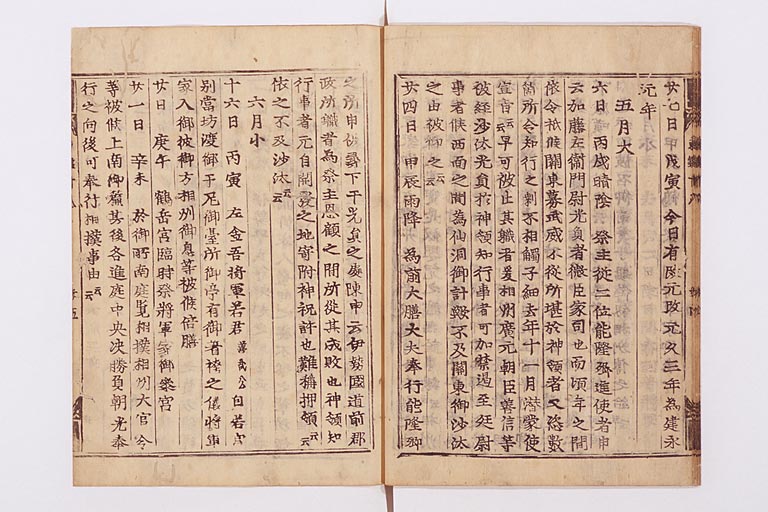 廿七日 甲戌 寅 今日有改元改元久三年為建永
元年
五月大
六日 丙戌晴陰 祭主従三位能隆卿進使者申
云加藤左衛門尉光員者微臣家司也而頃年之間
依令祗候関東募武威不従所堪於神領者又恣数
箇所令知行之剰不相觸子細去年十一月潜蒙使
宣旨云云早可被止其職者爰相州広元朝臣善信等
被経沙汰光員於神領知行事者可加禁遏至廷尉
事者候西面之間為仙洞御計歟不及関東御沙汰
之由被仰之云云
廿四日 甲辰雨降 為前大膳大夫奉行能隆卿
之所申被尋下于光員之處陳申云伊勢國道前郡
政所職者為祭主恩顧之間所從其成敗也神領知
行事者元自開發之地寄附神祝許也難稱押領云云
依之不及沙汰云云
六月小
十六日 丙寅 左金吾将軍若君
別當坊渡御于尼御臺所御亭有御著袴之儀将軍
家入御彼御方相州御息等被候陪膳
廿日 庚午 鶴岳宮臨時祭将軍家御参宮
廿一日 辛未 於御所南庭覧相撲相州大官令
等被候上南御簾其後各進庭中央决勝負朝光奉
行之向後可奉行相撲事由云云
廿五